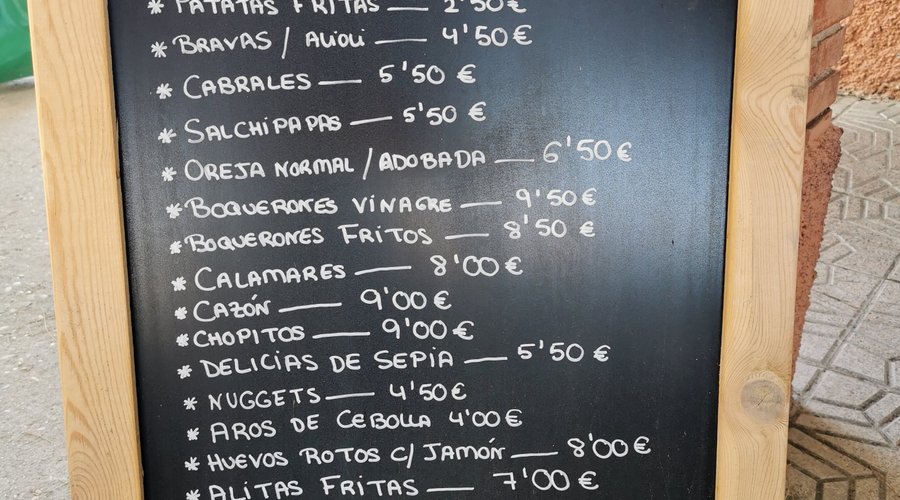 * PATATAS FRITAS — 2'50€
* BRAVAS / ALIOLI — 4'50€
* CABRALES — 5'50 €
* SALCHIPAPAS — 5'50 €
* OREJA NORMAL / ADOBADA — 6'50€
* BOQUERONES VINAGRE — 9'50€
* BOQUERONES FRITOS — 8'50 €
* CALAMARES — 8'00€
* CAZÓN — 9'00€
* CHOPITOS — 9'00€
* DELICIAS DE SEPIA — 5'50 €
* NUGGETS — 4'50€
* AROS DE CEBOLLA 4'00€
* HUEVOS ROTOS C/ JAMÓN — 8'00€
* ALITAS FRITAS — 7'00€